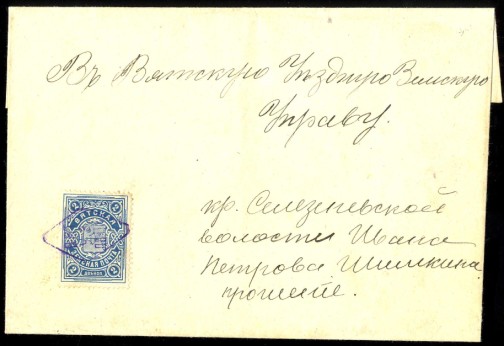 Въ Вятскую Уѣздную Земскую
Управу.
кр. Селезеневской
волости Ивана
Петрова Шишкина
прошеніе.
2 ВЯТСКАЯ 2
ЗЕМСКАЯ ПОЧТА
2 2